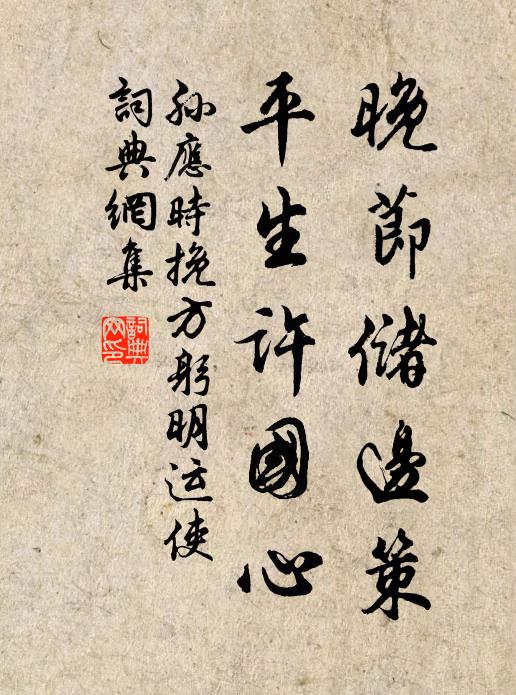 晚節儲邊策
平生許國心
孙應時挽方躬明运使
詞典網集
詞典
网印